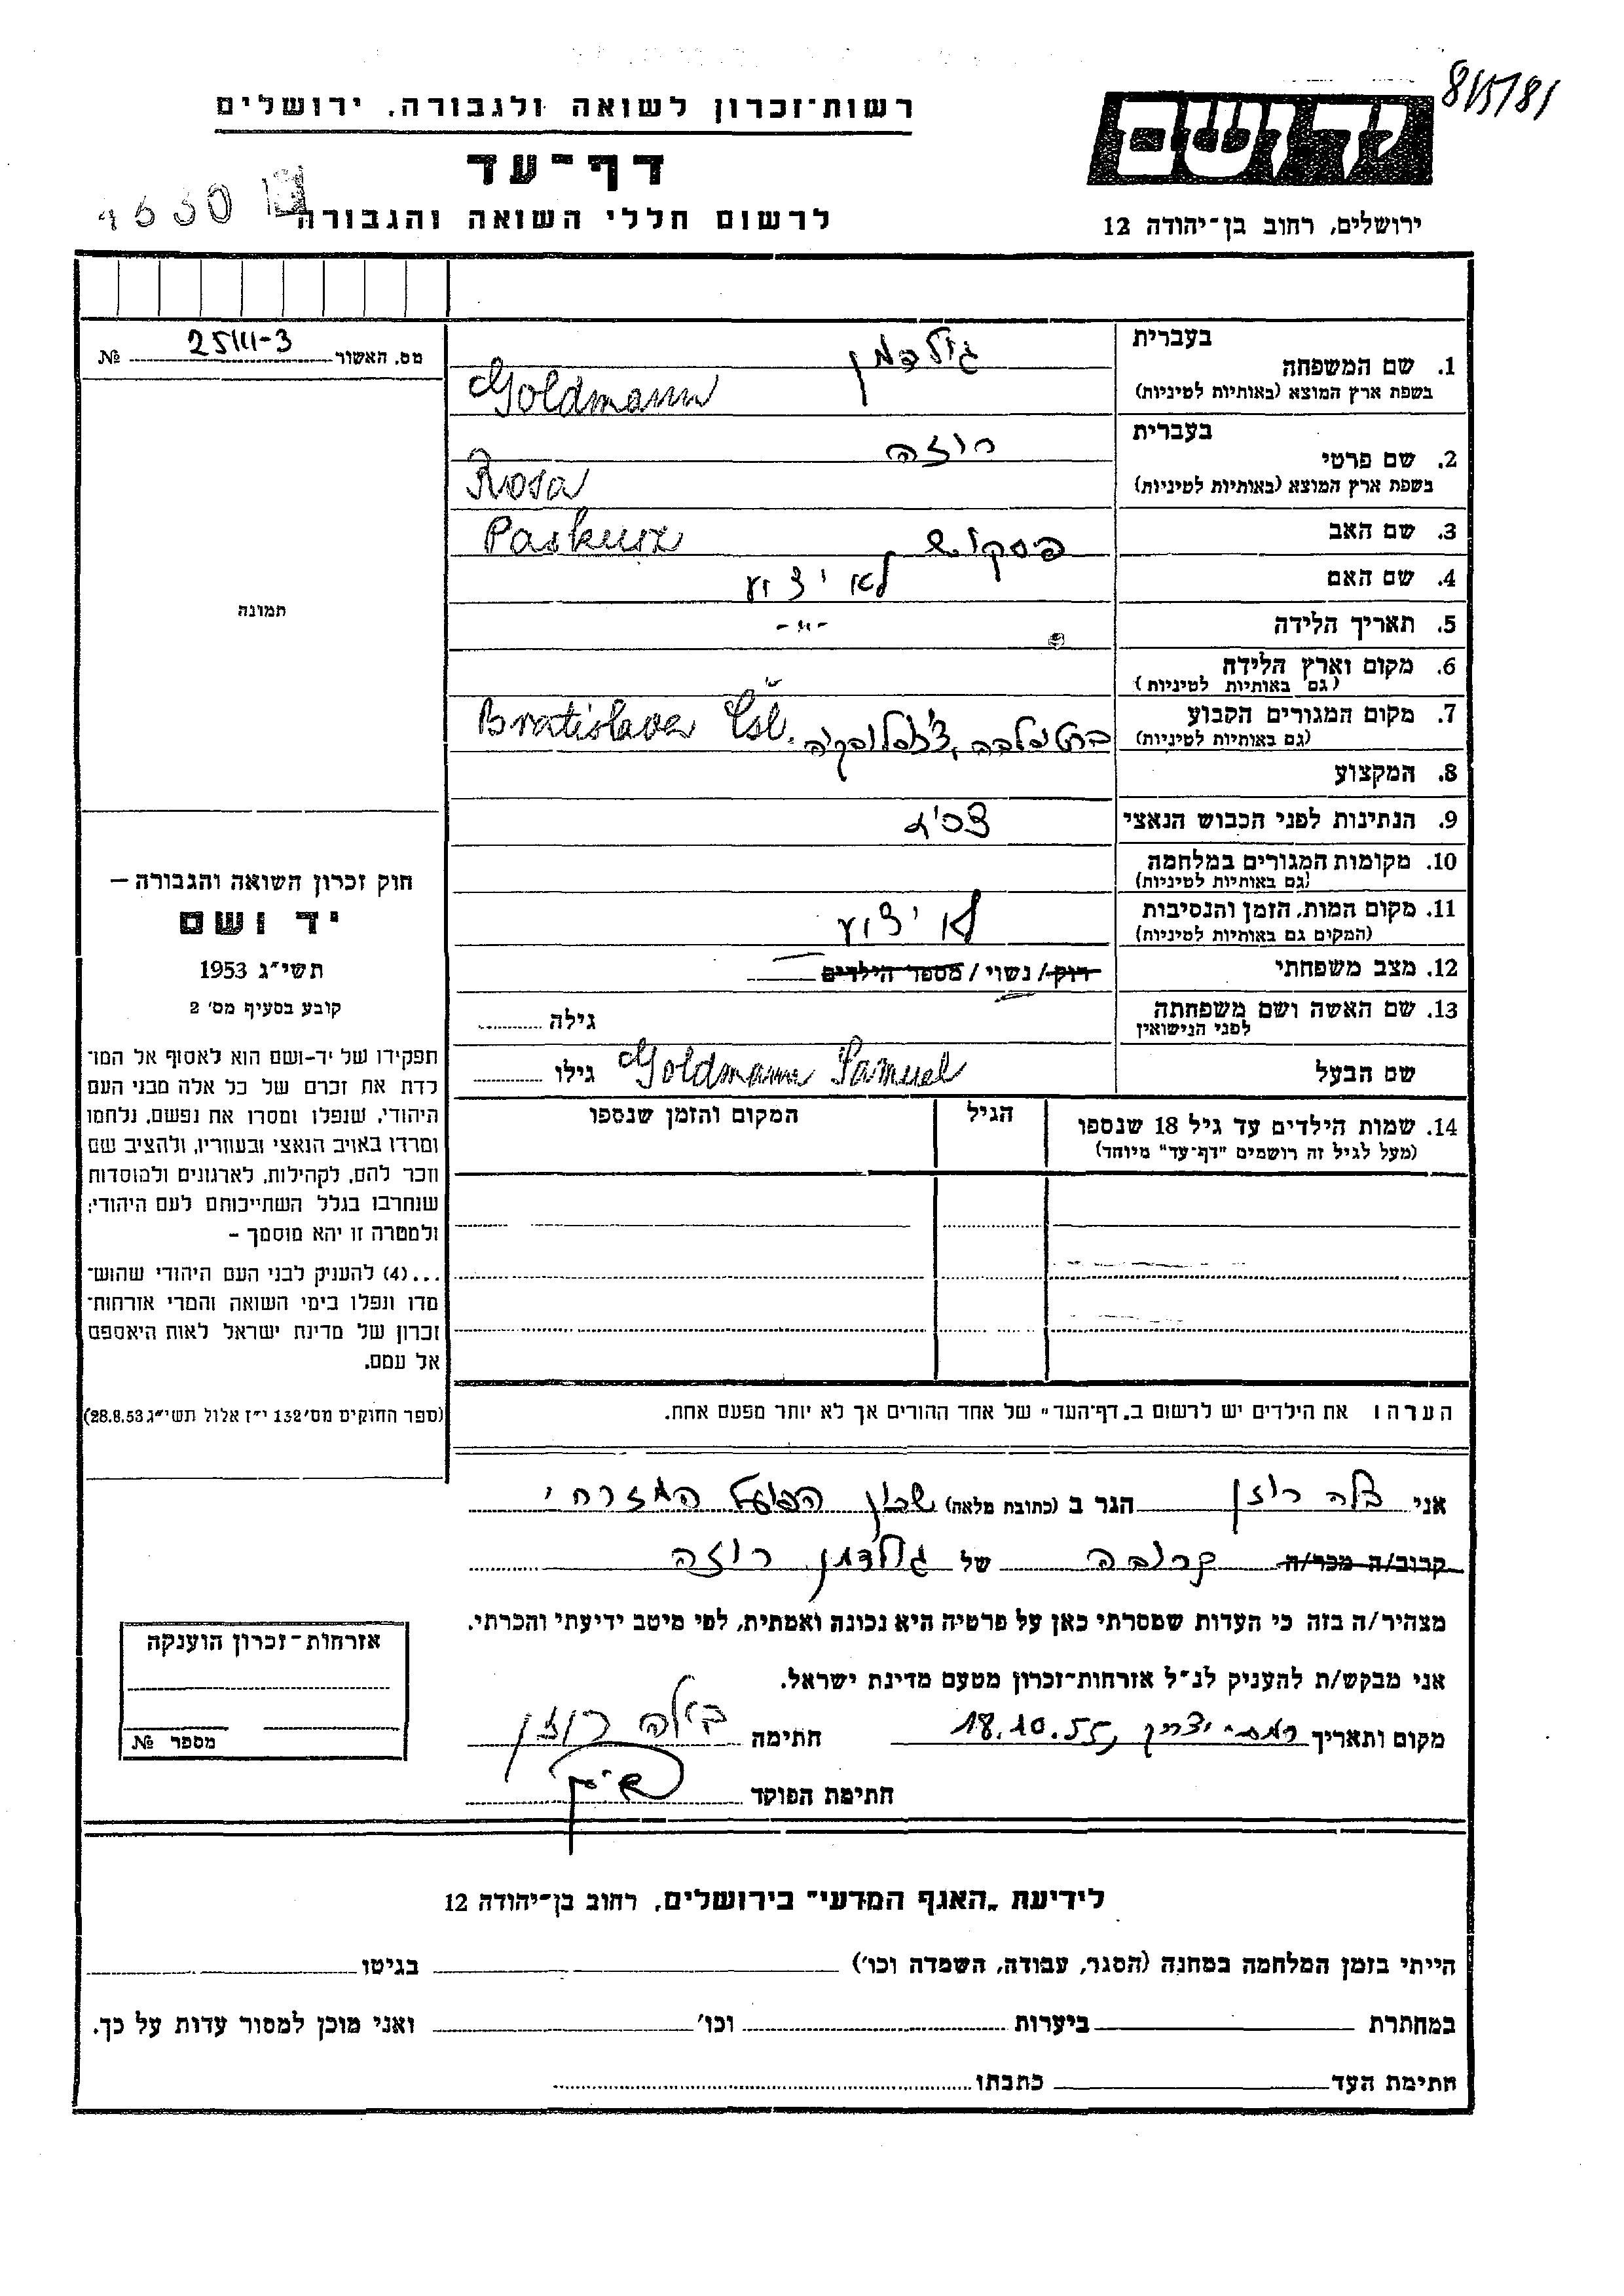 8/15/81
רשות־זכרון לשואה ולגבורה, ירושלים
יד ושם
דף־עד
לרשום חללי השואה והגבורה
ירושלים, רחוב בן־יהודה 12
מס. האשור 25/III-3 №
תמונה
חוק זכרון השואה והגבורה —
יד ושם
תשי״ג 1953
קובע בסעיף מס׳ 2
תפקידו של יד-ושם הוא לאסוף אל המו־
לדת את זכרם של כל אלה מבני העם
היהודי, שנפלו ומסרו את נפשם, נלחמו
ומרדו באויב הנאצי ובעוזריו, ולהציב שם
וזכר להם, לקהילות, לארגונים ולמוסדות
שנחרבו בגלל השתייכותם לעם היהודי;
ולמטרה זו יהא מוסמך –
...(4) להעניק לבני העם היהודי שהוש־
מדו ונפלו בימי השואה והמרי אזרחות־
זכרון של מדינת ישראל לאות היאספם
אל עמם.
(ספר החוקים מס׳ 132 י״ז אלול תשי״ג 28.8.53)
בעברית גולדמן
1. שם המשפחה
בשפת ארץ המוצא (באותיות לטיניות) Goldmann
בעברית רוזה
2. שם פרטי
בשפת ארץ המוצא (באותיות לטיניות) Rosa
3. שם האב פסקוש Paskusz
4. שם האם לא ידוע
5. תאריך הלידה -״-
6. מקום וארץ הלידה
(גם באותיות לטיניות)
7. מקום המגורים הקבוע ברטיסלבה, צ'כסלובקיה Bratislava Čsl.
(גם באותיות לטיניות)
8. המקצוע
9. הנתינות לפני הכבוש הנאצי
10. מקומות המגורים במלחמה
(גם באותיות לטיניות)
11. מקום המות, הזמן והנסיבות לא ידוע
(המקום גם באותיות לטיניות)
12. מצב משפחתי רוק/ נשוי/ מספר הילדים
13. שם האשה ושם משפחתה גילה
לפני הנישואין
שם הבעל Goldmann Samuel גילו
14. שמות הילדים עד גיל 18 שנספו הגיל המקום והזמן שנספו
(מעל לגיל זה רושמים "דף־עד" מיוחד)
הערה: את הילדים יש לרשום ב„דף־העד" של אחד ההורים אך לא יותר מפעם אחת.
אני בלה רוזן הגר ב (כתובת מלאה) שכון הפועל המזרחי
קרוב/ה מכר/ה קרובה של גולדמן רוזה
מצהיר/ה בזה כי העדות שמסרתי כאן על פרטיה היא נכונה ואמתית, לפי מיטב ידיעתי והכרתי.
אני מבקש/ת להעניק לנ״ל אזרחות־זכרון מטעם מדינת ישראל.
מקום ותאריך רמת-יצחק, 18.10.55 חתימה בלה רוזן
חתימת הפוקד
אזרחות־זכרון הוענקה
מספר №
לידיעת „האגף המדעי" בירושלים, רחוב בן־יהודה 12
הייתי בזמן המלחמה במחנה (הסגר, עבודה, השמדה וכו׳) בגיטו
במחתרת ביערות וכו׳ ואני מוכן למסור עדות על כך.
חתימת העד כתבתו